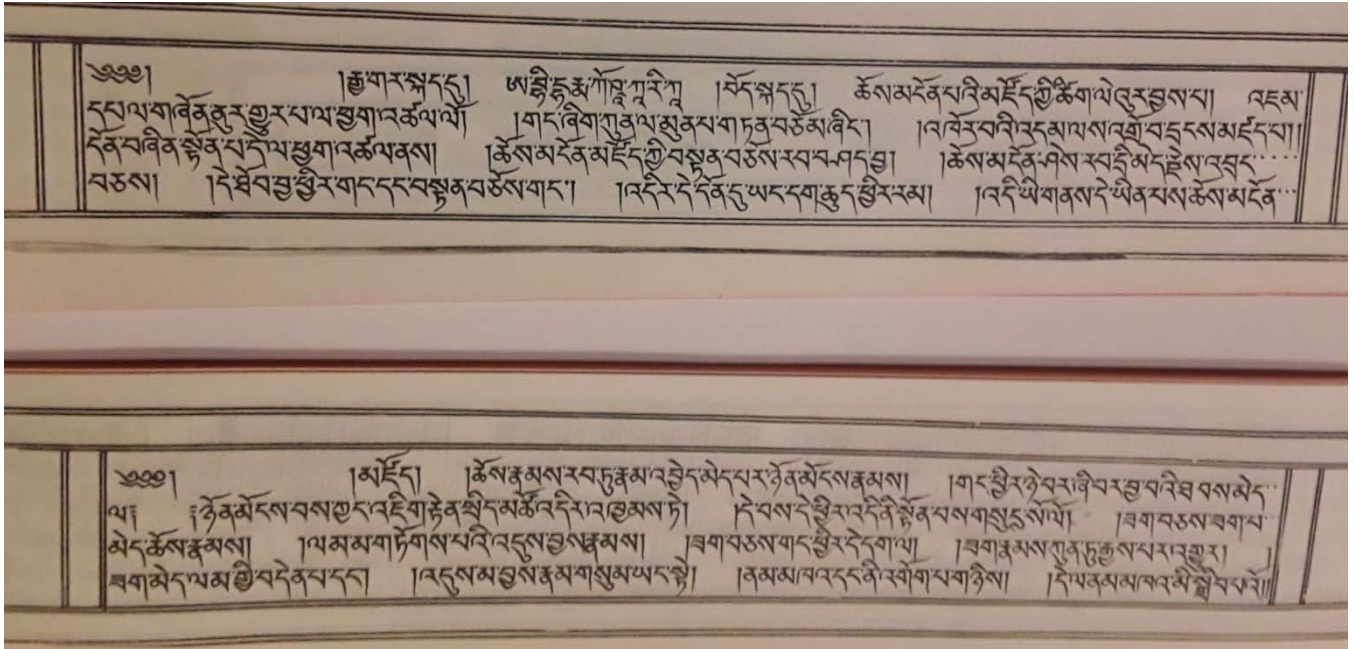 ༄༅༅། །རྒྱ་གར་སྐད་དུ། ཨ་བྷི་དྷརྨ་ཀོ་ཥ་ཀཱ་རི་ཀཱ །བོད་སྐད་དུ། ཆོས་མངོན་པའི་མཛོད་ཀྱི་ཚིག་ལེའུར་བྱས་པ། འཇམ་
དཔལ་གཞོན་ནུར་གྱུར་པ་ལ་ཕྱག་འཚལ་ལོ། །གང་ཞིག་ཀུན་ལ་མུན་པ་གཏན་བཅོམ་ཞིང་། །འཁོར་བའི་འདམ་ལས་འགྲོ་བ་དྲངས་མཛད་པ།།
དོན་བཞིན་སྟོན་པ་དེ་ལ་ཕྱག་འཚལ་ནས། །ཆོས་མངོན་མཛོད་ཀྱི་བསྟན་བཅོས་རབ་བཤད་བྱ། །ཆོས་མངོན་ཤེས་རབ་དྲི་མེད་རྗེས་འབྲང་
བཅས། །དེ་ཐོབ་བྱ་ཕྱིར་གང་དང་བསྟན་བཅོས་གང་། །འདིར་དེ་དོན་དུ་ཡང་དག་ཆུད་ཕྱིར་རམ། །འདི་ཡི་གནས་དེ་ཡིན་པས་ཆོས་མངོན་
༄༅༅། །མཛོད། །ཆོས་རྣམས་རབ་ཏུ་རྣམ་འབྱེད་མེད་པར་ཉོན་མོངས་རྣམས། །གང་ཕྱིར་ཉེ་བར་ཞི་བར་བྱ་བའི་ཐབས་མེད་
ལ༔ ༔ཉོན་མོངས་པས་ཀྱང་འཇིག་རྟེན་སྲིད་མཚོ་འདིར་འཁྱམས་ཏེ། །དེ་བས་དེ་ཕྱིར་འདི་ནི་སྟོན་པས་གསུངས་ལོ། །ཟག་བཅས་ཟག་པ་
མེད་ཆོས་རྣམས། །ལམ་མ་གཏོགས་པའི་འདུས་བྱས་རྣམས། །ཟག་བཅས་གང་ཕྱིར་དེ་དག་ལ། །ཟག་རྣམས་ཀུན་ཏུ་རྒྱས་པར་འགྱུར། །
ཟག་མེད་ལམ་གྱི་བདེན་པ་དང། །འདུས་མ་བྱས་རྣམ་གསུམ་ཡང་སྟེ། །ནམ་མཁའ་དང་ནི་འགོག་པ་གཉིས། །དེ་ལ་ནམ་མཁའ་མི་སྒྲིབ་པའོ།།